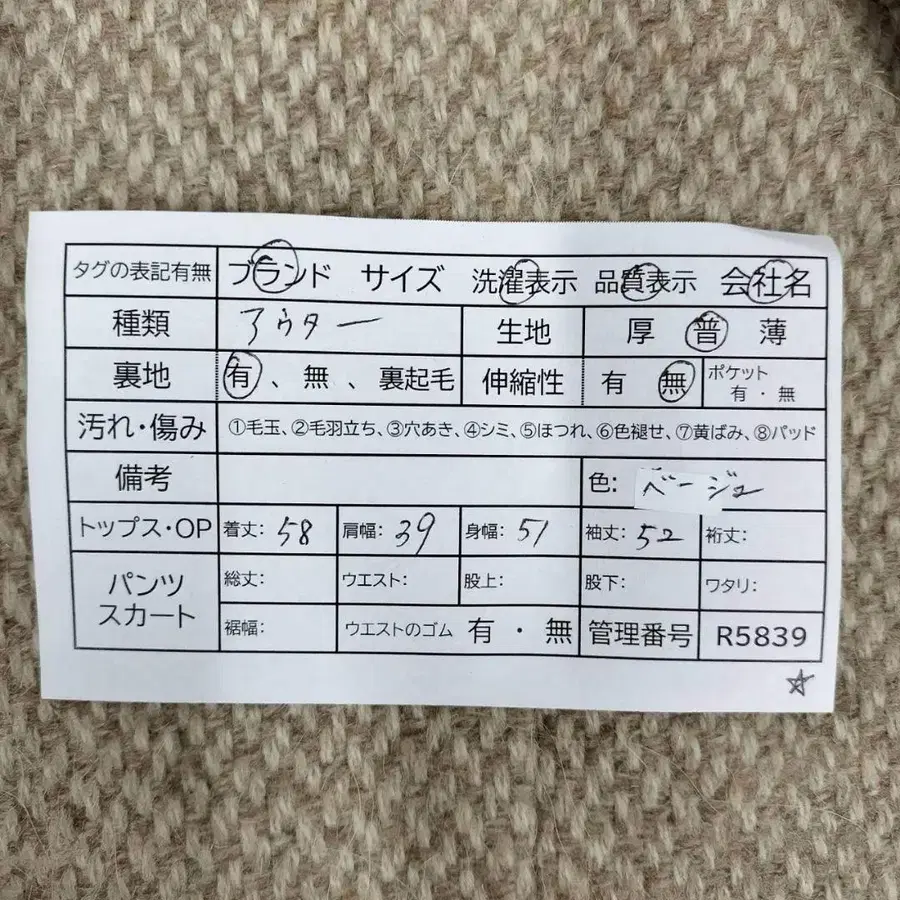 タグの表記有無 ブランド サイズ 洗濯表示 品質表示 会社名
種類 アウター 生地 厚 普 薄
裏地 有、無、裏起毛 伸縮性 有 無 ポケット 有・無
汚れ・傷み ①毛玉、②毛羽立ち、③穴あき、④シミ、⑤ほつれ、⑥色褪せ、⑦黄ばみ、⑧パッド
備考 色: ベージュ
トップス・OP 着丈: 58 肩幅: 39 身幅: 51 袖丈: 52 裄丈:
パンツ スカート 総丈: ウエスト: 股上: 股下: ワタリ:
裾幅: ウエストのゴム 有・無 管理番号 R5839